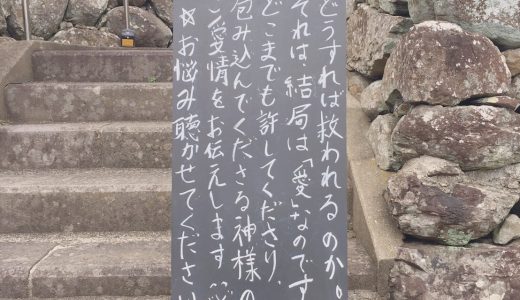 どうすれば救われるのか。
それは結局は「愛」なのです
どこまでも許してくださり、
包み込んでくださる神様の
ご愛情をお伝えします
☆お悩み聴かせてください